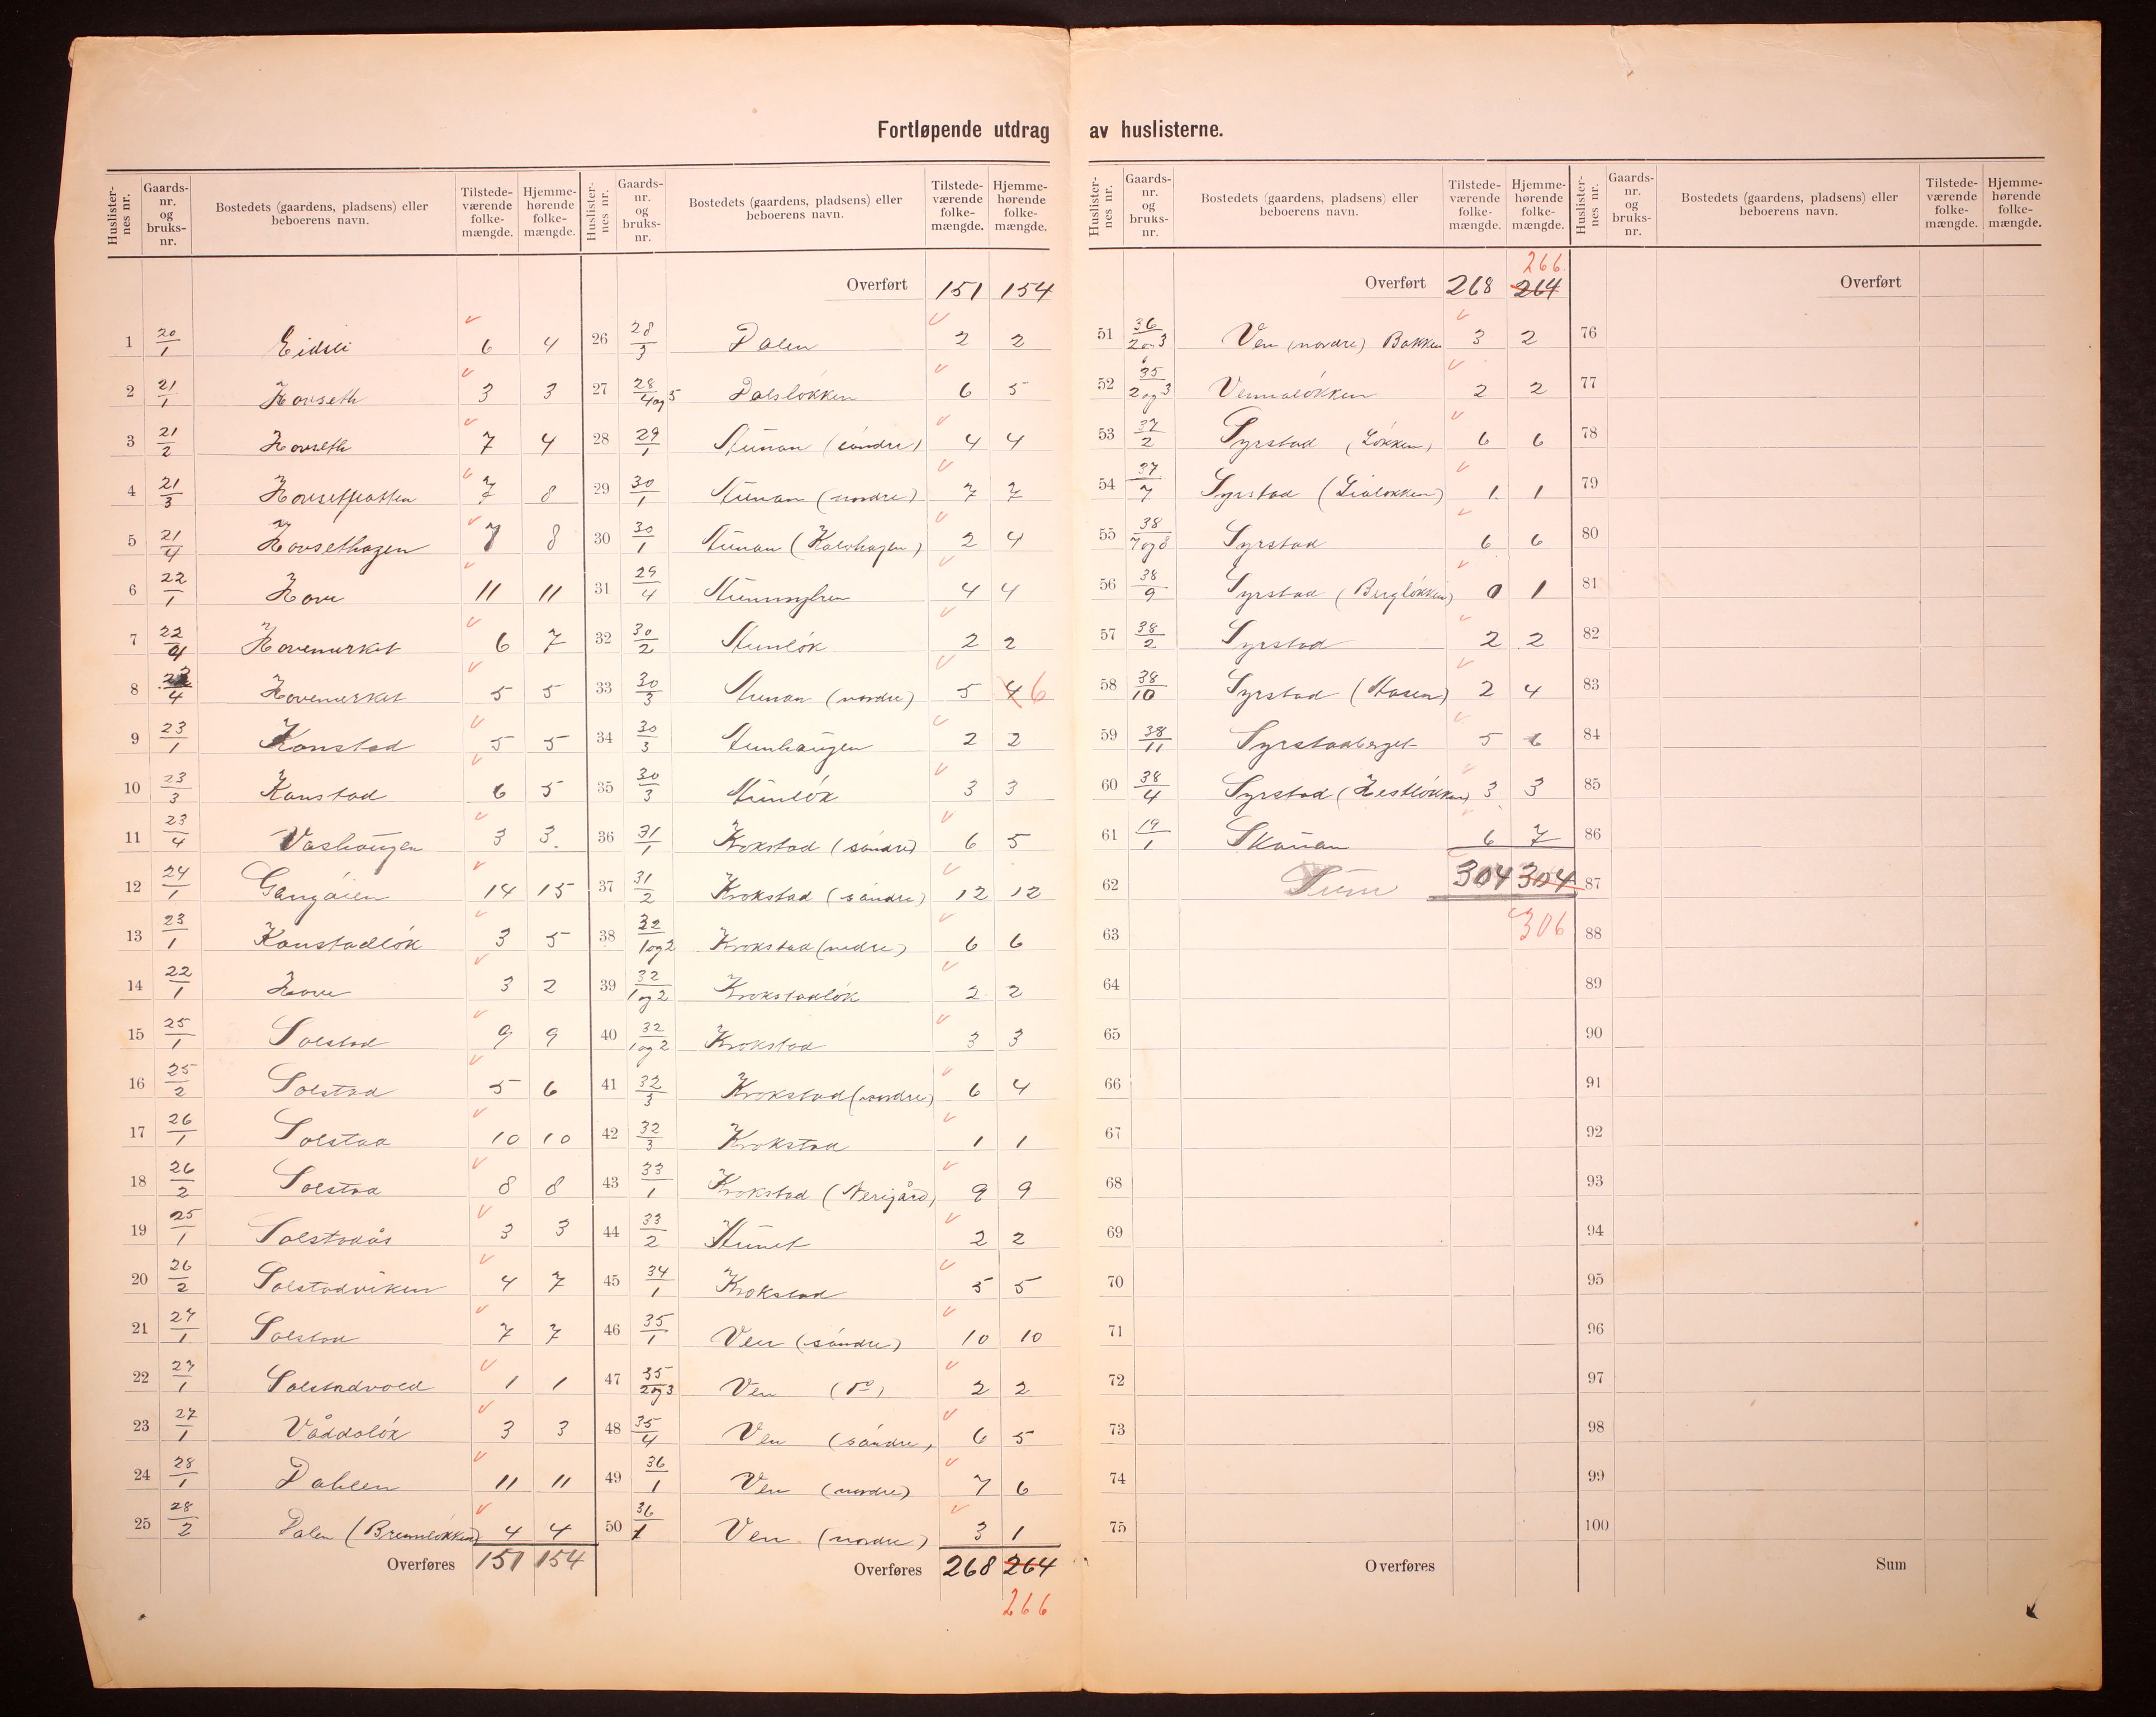 Fortløpende utdrag av huslisterne.
Huslisternes nr. Gaards-nr. og bruks-nr. Bostedets (gaardens, pladsens) eller beboerens navn. Tilstede-værende folke-mængde. Hjemme-hørende folke-mængde.
1 20/1 Eidsli 6 4
2 21/1 Hovseth 3 3
3 21/2 Hovseth 7 4
4 21/3 7 8
5 21/4 Hovsethagen 7 8
6 22/1 Hove 11 11
7 22/4 Hovemerket 6 7
8 22/4 Hovemerket 5 5
9 23/1 Konstad 5 5
10 23/3 Konstad 6 5
11 23/4 Vashaugen 3 3
12 24/1 Gangåien 14 15
13 23/1 Konstadløk 3 5
14 22/1 Hove 3 2
15 25/1 Solstad 9 9
16 25/2 Solstad 5 6
17 26/1 Solstad 10 10
18 26/2 Solstad 8 8
19 25/1 Solstadås 3 3
20 26/2 Solstadviken 4 7
21 27/1 Solstad 7 7
22 27/1 Solstadvold 1 1
23 27/1 Våddøløk 3 3
24 28/1 Dahlen 11 11
25 28/2 Dalen (Brennløkken) 4 4
Overføres 151 154
Huslisternes nr. Gaards-nr. og bruks-nr. Bostedets (gaardens, pladsens) eller beboerens navn. Tilstede-værende folke-mængde. Hjemme-hørende folke-mængde.
Overført 151 154
26 28/3 Dalen 2 2
27 28/4og5 Dalsløkken 6 5
28 29/1 Stunan (søndre) 4 4
29 30/1 Stunan (nordre) 7 7
30 30/1 Stunan (Kalvhagen) 2 4
31 29/4 Stunmyhren 4 4
32 30/2 Stunløk 2 2
33 30/3 Stunan (nordre) 5 4 6
34 30/3 Stunhaugen 2 2
35 30/3 Stunløk 3 3
36 31/1 Krokstad (søndre) 6 5
37 31/2 Krokstad (søndre) 12 12
38 32/1og2 Krokstad (nedre) 6 6
39 32/1og2 Krokstadløk 2 2
40 32/1og2 Krokstad 3 3
41 32/3 Krokstad (nordre) 6 4
42 32/3 Krokstad 1 1
43 33/1 Krokstad (Nerigård) 9 9
44 33/2 Stunet 2 2
45 34/1 Krokstad 5 5
46 35/1 Ven (søndre) 10 10
47 35/2og3 Ven (do) 2 2
48 35/4 Ven (søndre) 6 5
49 36/1 Ven (nordre) 7 6
50 36/1 Ven (nordre) 3 1
Overføres 268 264
266
Huslisternes nr. Gaards-nr. og bruks-nr. Bostedets (gaardens, pladsens) eller beboerens navn. Tilstede-værende folke-mængde. Hjemme-hørende folke-mængde.
266
Overført 268 264
51 36/2og3 Ven (nordre) Bakken 3 2
52 35/2og3 Vennaløkken 2 2
53 37/2 Syrstad (Løkken) 6 6
54 37/7 Syrstad (Lialøkken) 1 1
55 38/7og8 Syrstad 6 6
56 38/9 Syrstad (Bergløkken) 0 1
57 38/2 Syrstad 2 2
58 38/10 Syrstad (Hasen) 2 4
59 38/11 Syrstadberget 5 6
60 38/4 Syrstad (Hestløkken) 3 3
61 19/1 Skauan 6 7
62 Sum 304 304
63 306
64
65
66
67
68
69
70
71
72
73
74
75
Overføres
Huslisternes nr. Gaards-nr. og bruks-nr. Bostedets (gaardens, pladsens) eller beboerens navn. Tilstede-værende folke-mængde. Hjemme-hørende folke-mængde.
Overført
76
77
78
79
80
81
82
83
84
85
86
87
88
89
90
91
92
93
94
95
96
97
98
99
100
Sum